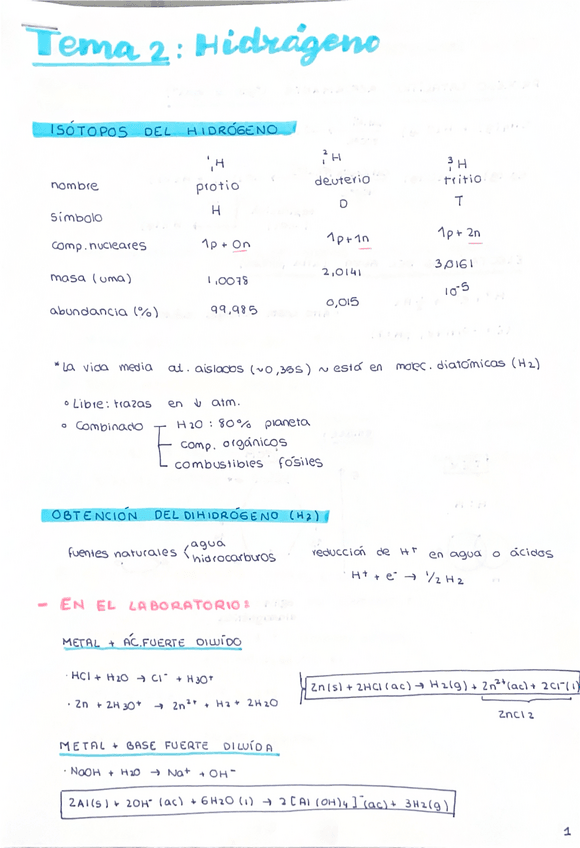 Tema 2: Hidrógeno
ISÓTOPOS DEL HIDRÓGENO
¹₁H ²₁H ³₁H
nombre protio deuterio tritio
símbolo H D T
comp. nucleares 1p + 0n 1p+1n 1p + 2n
masa (uma) 1,0078 2,0141 3,0161
abundancia (%) 99,985 0,015 10⁻⁵
*La vida media at. aislados (~0,3s) ~ está en molec. diatómicas (H2)
° Libre: trazas en ↓ atm.
° Combinado H2O: 80% planeta
comp. orgánicos
combustibles fósiles
OBTENCIÓN DEL DIHIDRÓGENO (H2)
fuentes naturales agua hidrocarburos · reducción de H⁺ en agua o ácidos
· H⁺ + e⁻ → 1/2 H2
- EN EL LABORATORIO:
METAL + ÁC. FUERTE DILUÍDO
· HCl + H2O → Cl⁻ + H3O⁺
Zn(s) + 2HCl(ac) → H2(g) + Zn²⁺(ac) + 2Cl⁻(l)
ZnCl2
· Zn + 2H3O⁺ → Zn²⁺ + H2 + 2H2O
METAL + BASE FUERTE DILUÍDA
· NaOH + H2O → Na⁺ + OH⁻
2Al(s) + 2OH⁻(ac) + 6H2O(l) → 2[Al(OH)4]⁻(ac) + 3H2(g)
1